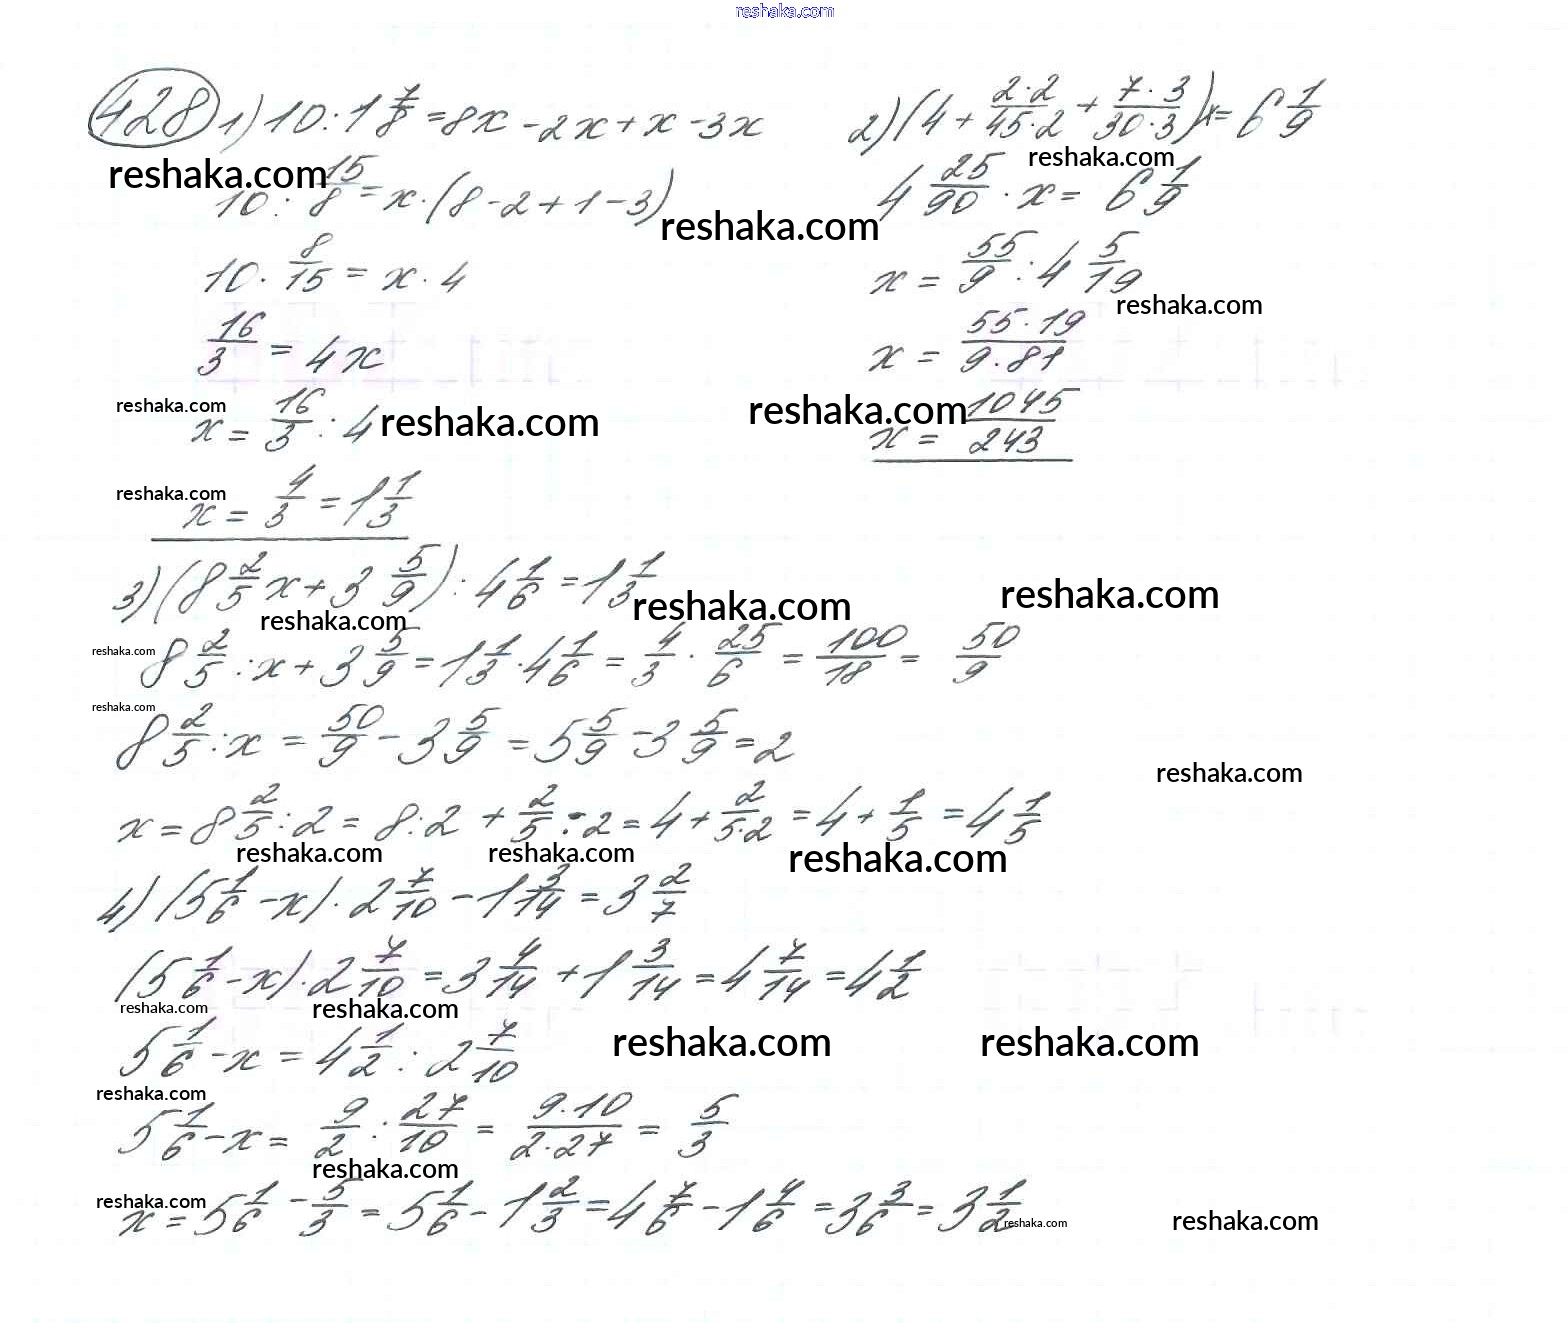 reshaka.com
428 1) 10 : 1 7/8 = 8x - 2x + x - 3x
reshaka.com
10 : 15/8 = x · (8 - 2 + 1 - 3)
reshaka.com
10 · 8/15 = x · 4
16/3 = 4x
reshaka.com
x = 16/3 : 4
reshaka.com
reshaka.com
x = 4/3 = 1 1/3
2) (4 + 2·2/45·2 + 7·3/30·3)x = 6 1/9
reshaka.com
4 25/90 · x = 6 1/9
x = 55/9 : 4 5/19
reshaka.com
x = 55·19/9·81
reshaka.com
x = 1045/243
3) (8 2/5 x + 3 5/9) : 4 1/6 = 1 1/3
reshaka.com reshaka.com
reshaka.com
reshaka.com
8 2/5 : x + 3 5/9 = 1 1/3 · 4 1/6 = 4/3 · 25/6 = 100/18 = 50/9
reshaka.com
8 2/5 : x = 50/9 - 3 5/9 = 5 5/9 - 3 5/9 = 2
reshaka.com
x = 8 2/5 : 2 = 8 : 2 + 2/5 : 2 = 4 + 2/5·2 = 4 + 1/5 = 4 1/5
reshaka.com reshaka.com reshaka.com
4) (5 1/6 - x) · 2 7/10 - 1 3/14 = 3 2/7
(5 1/6 - x) · 2 7/10 = 3 4/14 + 1 3/14 = 4 7/14 = 4 1/2
reshaka.com reshaka.com
reshaka.com reshaka.com
5 1/6 - x = 4 1/2 : 2 7/10
reshaka.com
5 1/6 - x = 9/2 : 27/10 = 9·10/2·27 = 5/3
reshaka.com
reshaka.com
x = 5 1/6 - 5/3 = 5 1/6 - 1 2/3 = 4 7/6 - 1 4/6 = 3 3/6 = 3 1/2
reshaka.com reshaka.com